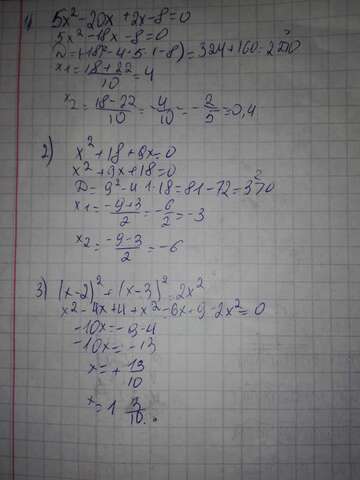 1) 5x²-20x+2x-8=0
5x²-18x-8=0
D=(-18)²-4·5·(-8)=324+160=22²>0
x1=18+22/10=4
x2=18-22/10=-4/10=-2/5=-0,4
2) x²+18+9x=0
x²+9x+18=0
D=9²-4·1·18=81-72=3²>0
x1=-9+3/2=-6/2=-3
x2=-9-3/2=-6
3) (x-2)²+(x-3)²=2x²
x²-4x+4+x²-6x+9-2x²=0
-10x=-9-4
-10x=-13
x=+13/10
x=1 3/10.